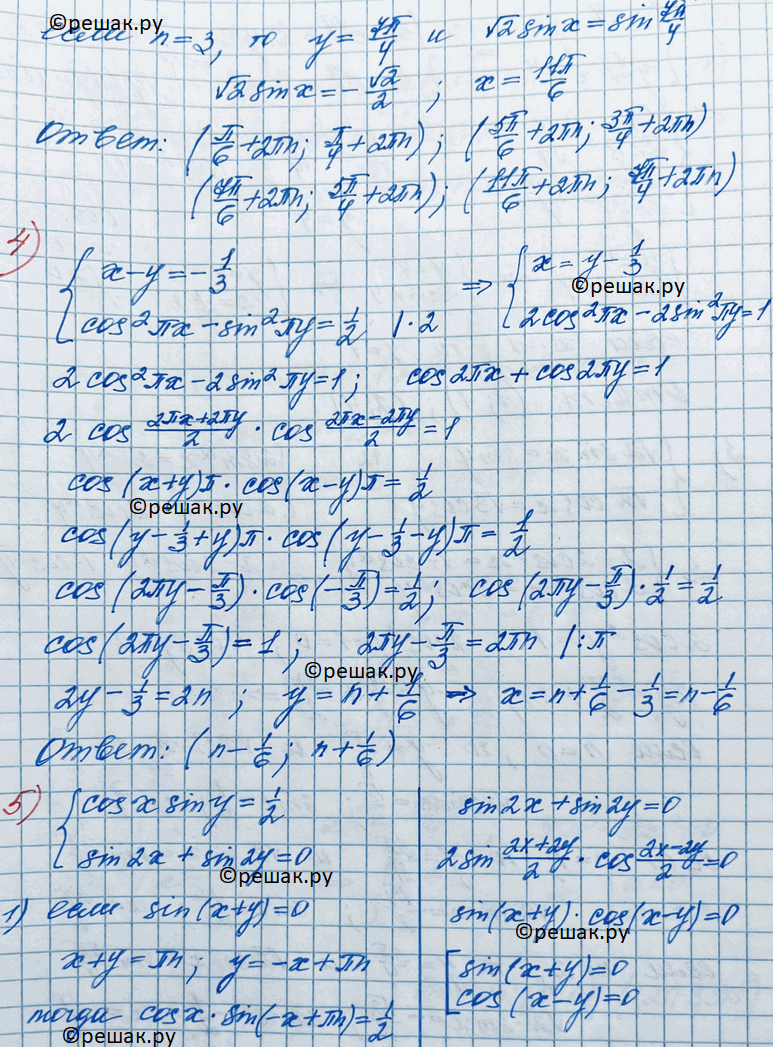 ©решак.ру
если n=3, то y = 7π/4 и √2 sin x = sin 7π/4
√2 sin x = -√2/2 ; x = 11π/6
Ответ: (π/6 + 2πn; π/4 + 2πn); (5π/6 + 2πn; 3π/4 + 2πn)
(7π/6 + 2πn; 5π/4 + 2πn); (11π/6 + 2πn; 7π/4 + 2πn)
4) { x - y = -1/3 ⇒ { x = y - 1/3
©решак.ру
cos²πx - sin²πy = 1/2 | · 2 2cos²πx - 2sin²πy = 1
2 cos²πx - 2 sin²πy = 1 ; cos 2πx + cos 2πy = 1
2 cos (2πx+2πy)/2 · cos (2πx-2πy)/2 = 1
cos (x+y)π · cos (x-y)π = 1/2
©решак.ру
cos (y - 1/3 + y)π · cos (y - 1/3 - y)π = 1/2
cos (2πy - π/3) · cos (-π/3) = 1/2 ; cos (2πy - π/3) · 1/2 = 1/2
cos (2πy - π/3) = 1 ; 2πy - π/3 = 2πn | : π
©решак.ру
2y - 1/3 = 2n ; y = n + 1/6 ⇒ x = n + 1/6 - 1/3 = n - 1/6
Ответ: (n - 1/6 ; n + 1/6)
5) { cos x sin y = 1/2
sin 2x + sin 2y = 0
©решак.ру
1) если sin (x+y) = 0
x + y = πn ; y = -x + πn
тогда cos x · sin (-x + πn) = 1/2
©решак.ру
sin 2x + sin 2y = 0
2 sin (2x+2y)/2 · cos (2x-2y)/2 = 0
sin (x+y) · cos (x-y) = 0
©решак.ру
[ sin (x+y) = 0
cos (x-y) = 0